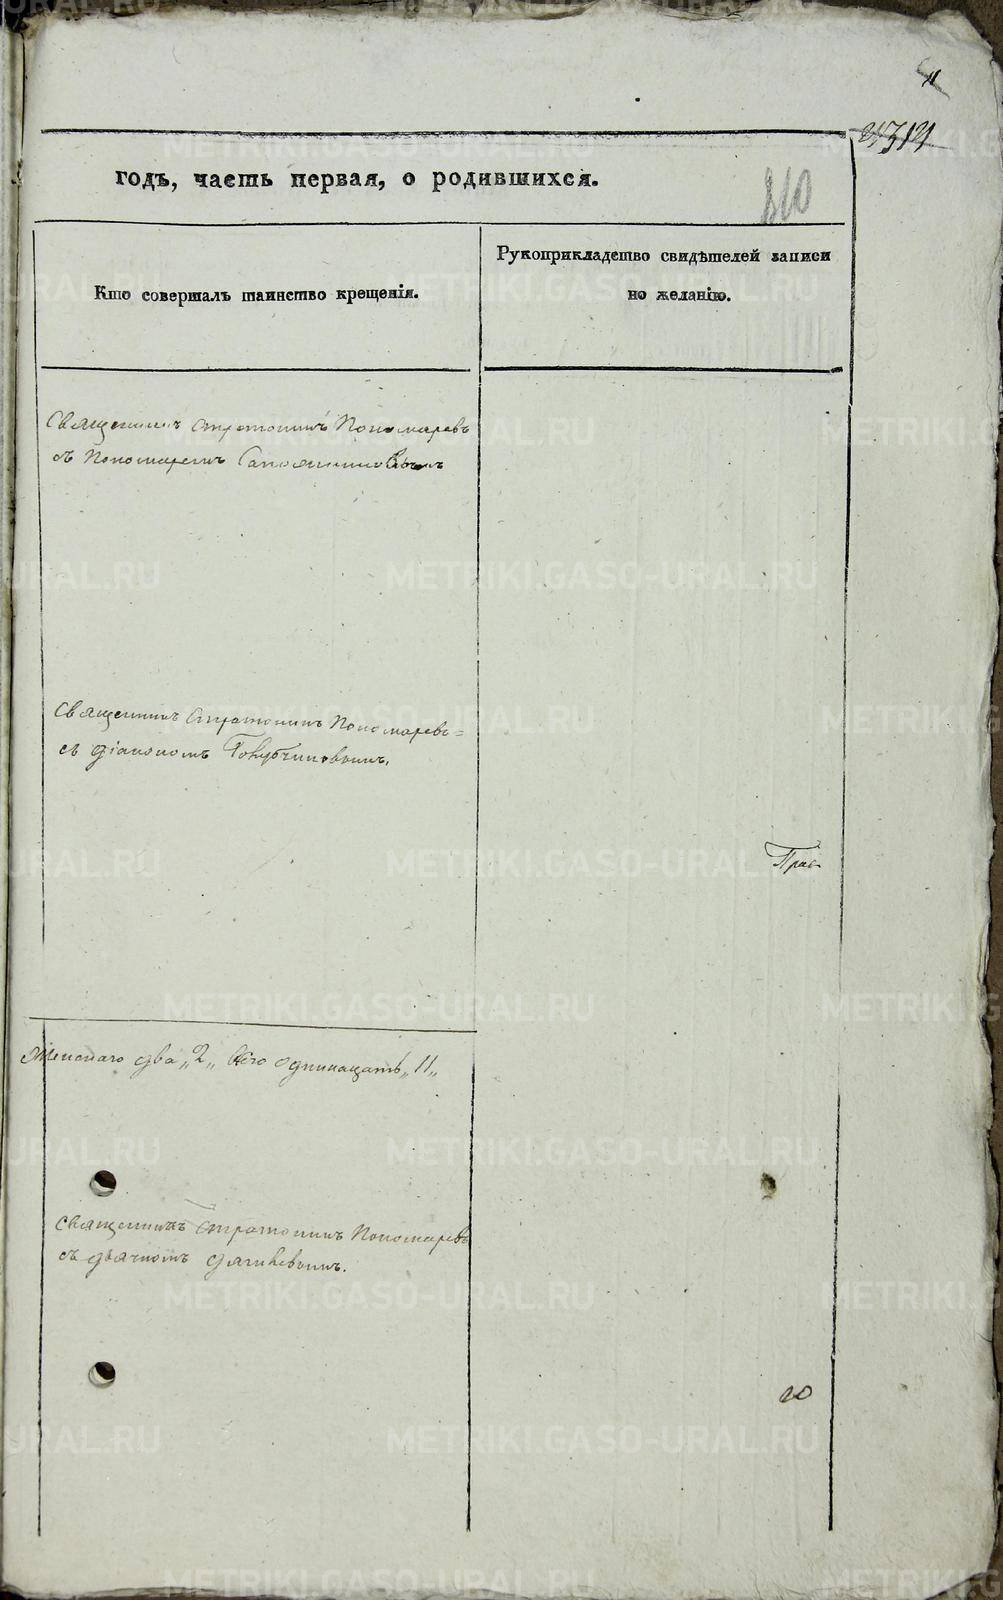 11
310
годъ, часть первая, о родившихся.
Кто совершалъ таинство крещенія.
Рукоприкладство свидѣтелей записи
по желанію.
Священникъ Стратоникъ Пономаревъ
съ Пономаремъ
Священникъ Стратоникъ Пономаревъ
съ діакономъ Голубчиковымъ.
Прав
Женскаго два „2„ всего одинадцать „11„
Священникъ Стратоникъ Пономаревъ
съ дьячкомъ Дягилевымъ.
20
METRIKI.GASO-URAL.RU